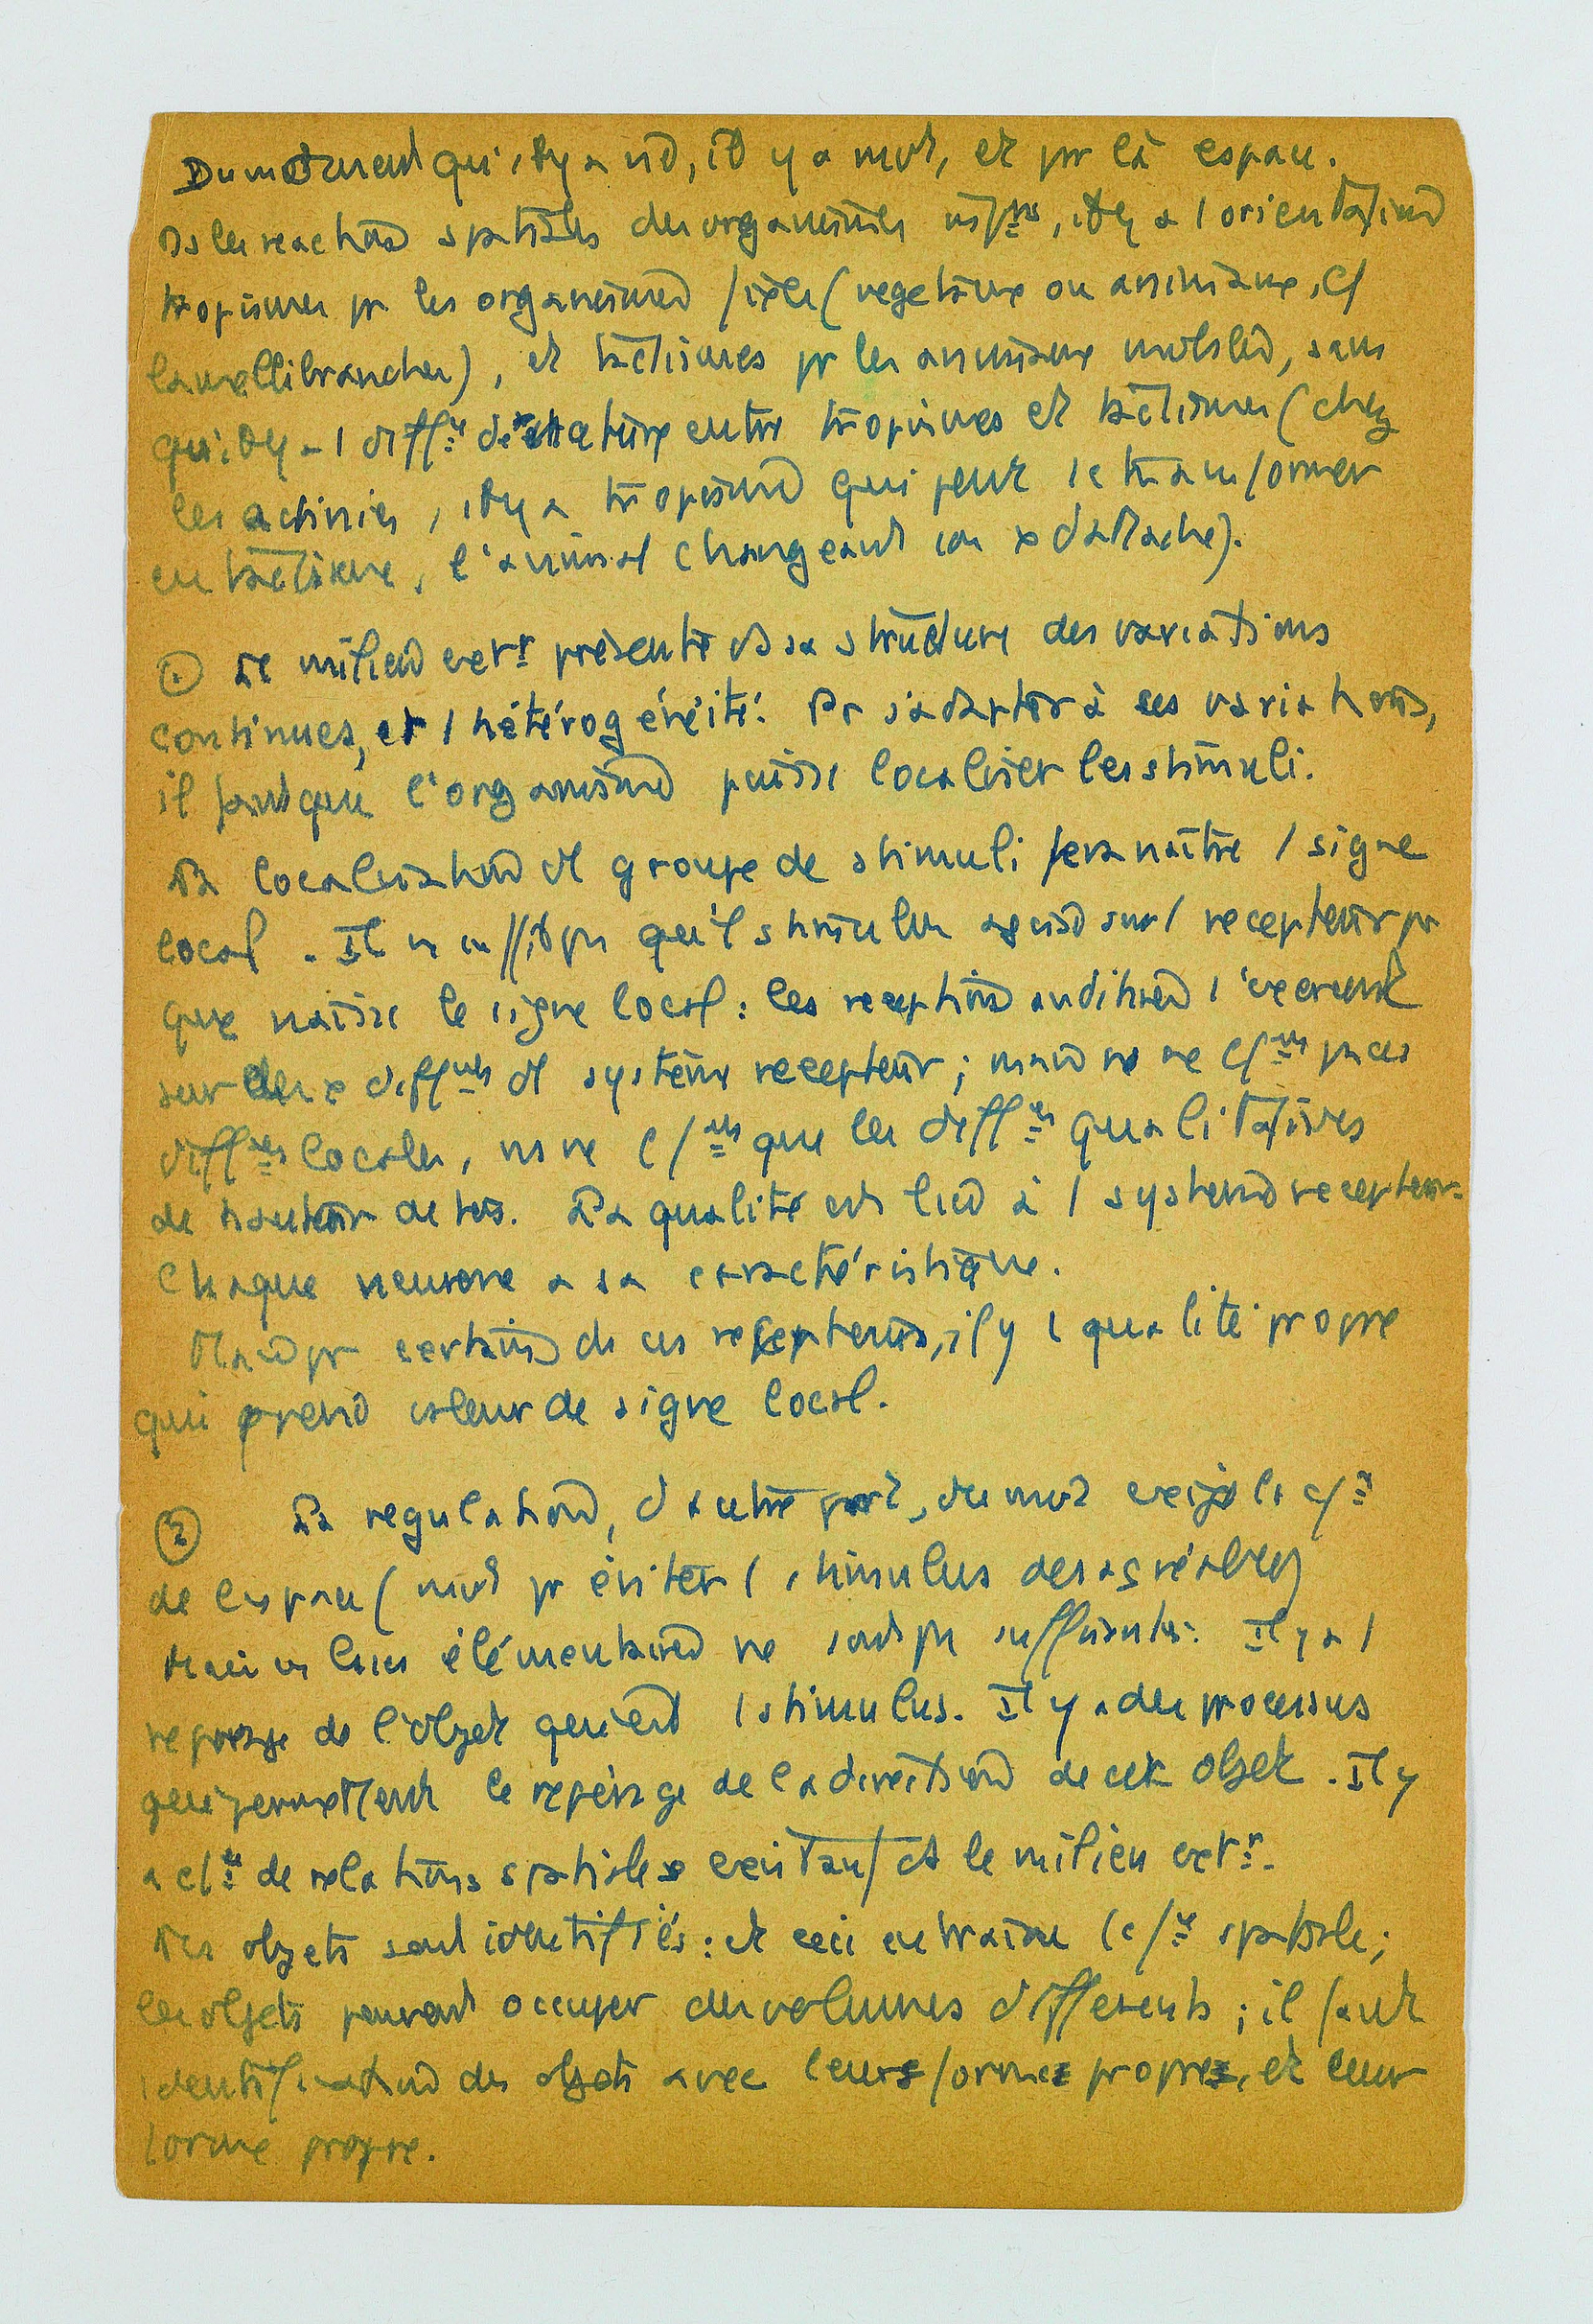 Du moment qu'il y a vie, il y a mvt, et pr là espace.
Ds les reactions spatiales des organismes infrs, il y a 1 orientation
tropismes pr les organismes fixes (vegetaux ou animaux, cf
lamellibranches), et tactismes pr les animaux mobiles, sans
qu'il y a 1 diffce de nature entre tropismes et tactismes (chez
les actinies, il y a tropisme qui peut se transformer
en tactisme, l'animal changeant son x d'attache).
① Le milieu extr présente ds sa structure des variations
continues, et 1 hétérogénéité. Pr s'adapter à ces variations,
il faut que l'organisme puisse localiser les stimuli.
La localisation d'1 groupe de stimuli fera naître 1 signe
local. Il ne suffit pas qu'1 stimulus agisse sur 1 recepteur pr
que naisse le signe local : les receptions auditives s'exercent
sur des x diffnts d'1 système recepteur ; mais ns ne cfns pas ces
diffces locales, ns ne cfns que les diffces qualitatives
de hauteur de sons. La qualité est liée à 1 systeme recepteur.
Chaque neurone a sa caractéristique.
Mais pr certains de ces recepteurs, il y 1 qualité propre
qui prend valeur de signe local.
② La regulation, d'autre part, du mvt exige la cfce
de l'espace (mvt pr éviter 1 stimulus desagréable)
Mais ces lois élémentaires ne sont pas suffisantes. Il y a 1
reperage de l'objet qui est 1 stimulus. Il y a des processus
qui permettent le repérage de la direction de cet objet. Il y
a cfce de relations spatiales existant ds le milieu extr.
Les objets sont identifiés : et ceci entraine 1 cfce spatiale ;
les objets peuvent occuper des volumes differents ; il faut
identification des objets avec leurs formes propres, et leur
forme propre.